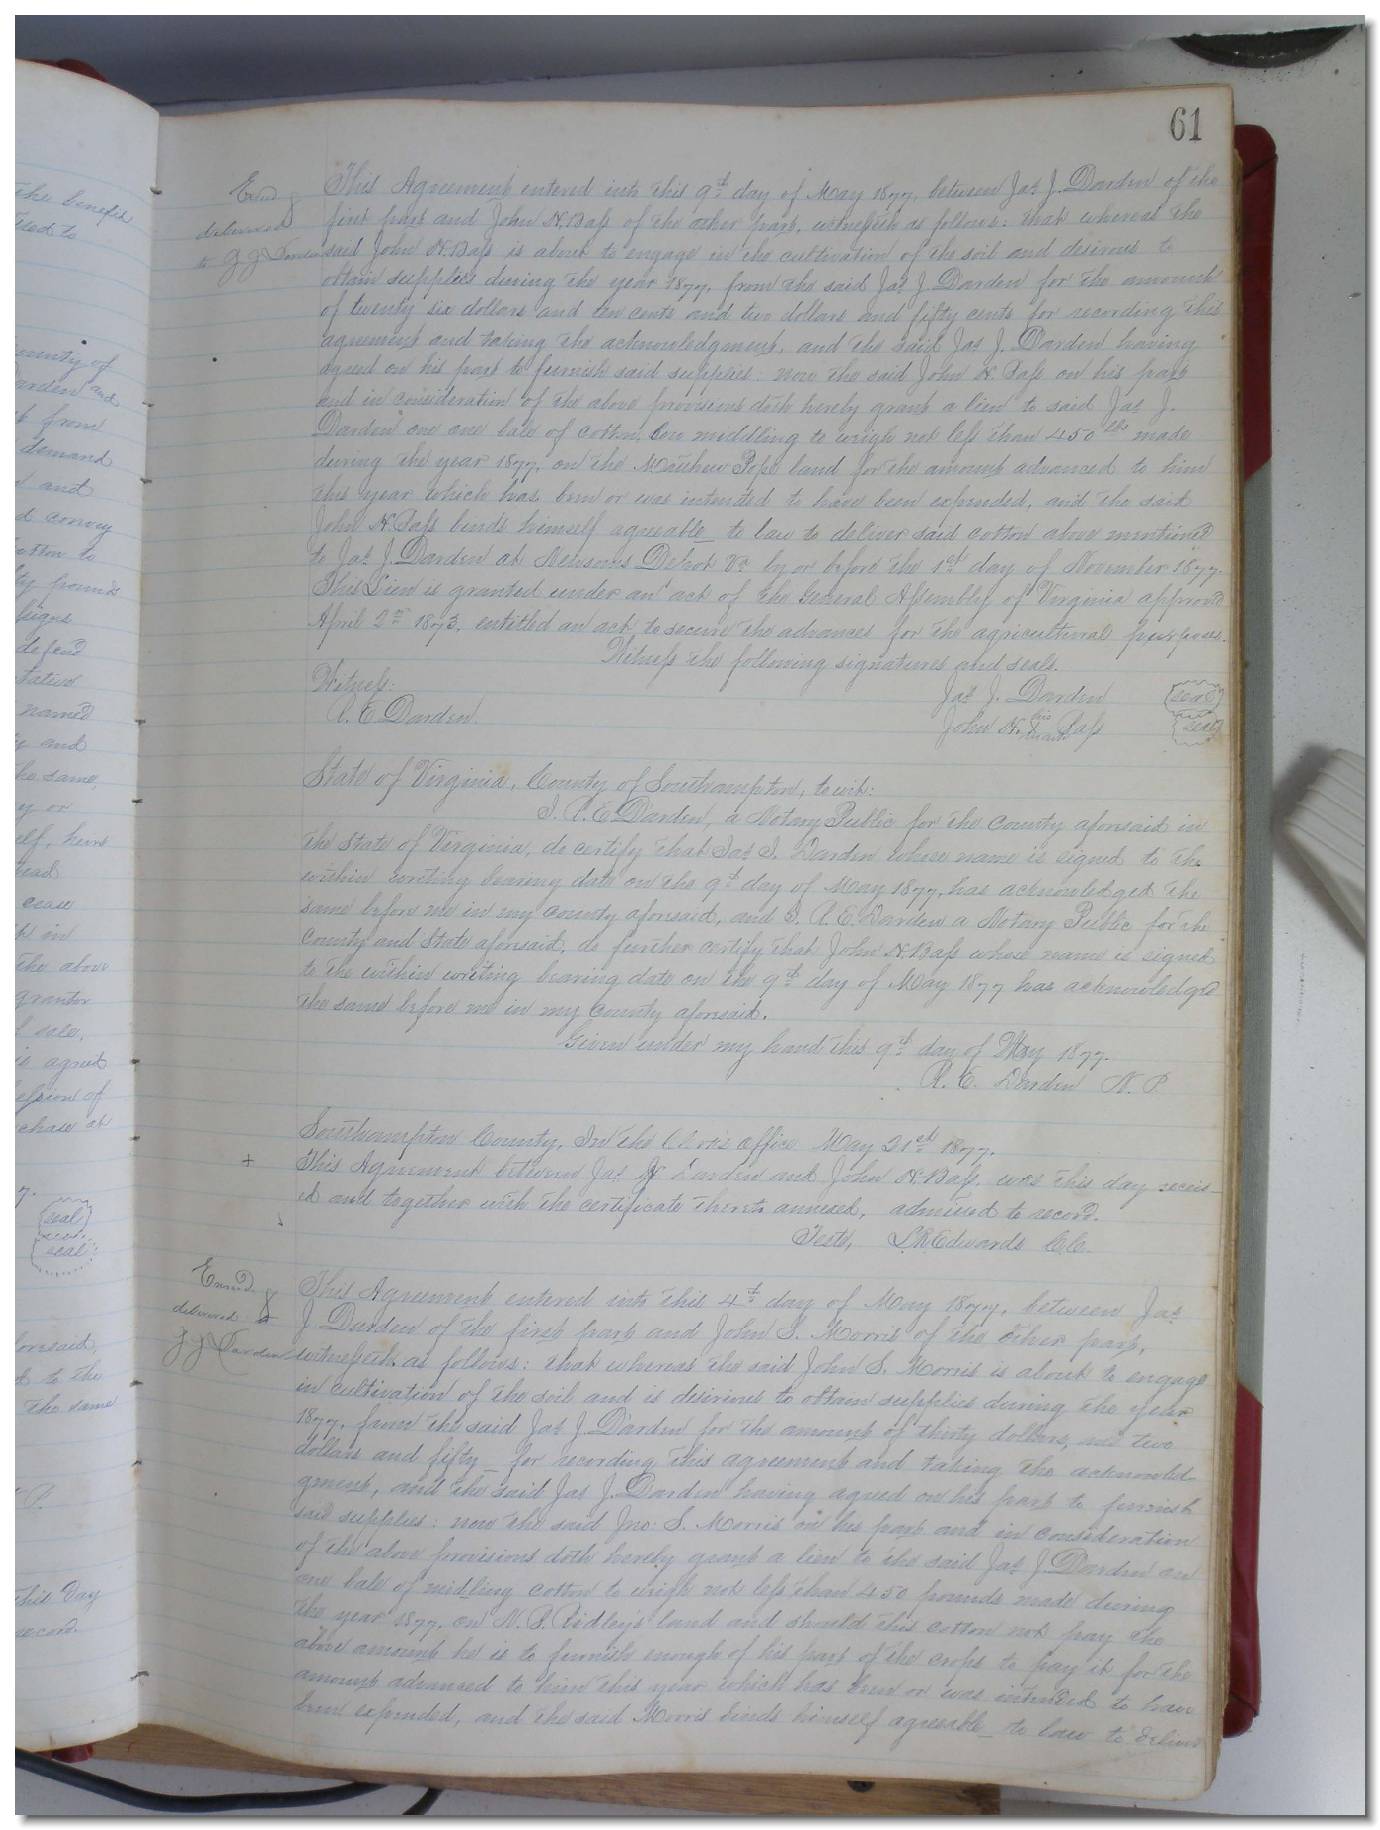 61
the benefit
used to
County of
Darden and
from
demand
and
convey
cotton to
fty pounds
ssigns
defend
named
and
the same,
or
self, heirs
cease
in
the above
grantor
sale,
is agreed
ession of
chase at
7.
seal
seal
foresaid,
to the
the same
this day
record.
Exmd &
delivered
to J J Darden
This Agreement entered into this 9th day of May 1877, between Jas J. Darden of the
first part and John H. Bass of the other part, witnesseth as follows: that whereas the
said John H. Bass is about to engage in the cultivation of the soil and desirous to
obtain supplies during the year 1877, from the said Jas J. Darden for the amount
of twenty six dollars and ten cents and two dollars and fifty cents for recording this
agreement and taking the acknowledgment, and the said Jas J. Darden having
agreed on his part to furnish said supplies: now the said John H. Bass on his part
and in consideration of the above provisions doth hereby grant a lien to said Jas J.
Darden on one bale of cotton, low middling to weigh not less than 450 lbs made
during the year 1877, on the Matthew Pope land for the amount advanced to him
this year which has been or was intended to have been expended, and the said
John H. Bass binds himself agreeable to law to deliver said cotton above mentioned
to Jas J. Darden at Newsoms Depot Va by or before the 1st day of November 1877.
This Lien is granted under an act of the General Assembly of Virginia approved
April 2nd 1873, entitled an act to secure the advances for the agricultural purposes.
Witness the following signatures and seals.
Witness: Jas J. Darden seal
R. E. Darden. John H. his X mark Bass seal
State of Virginia, County of Southampton, to wit:
I. R. E. Darden, a Notary Public for the County aforesaid in
the State of Virginia, do certify that Jas J. Darden whose name is signed to the
within writing bearing date on the 9th day of May 1877, has acknowledged the
same before me in my County aforesaid, and I. R. E. Darden a Notary Public for the
County and State aforesaid, do further certify that John H. Bass whose name is signed
to the within writing bearing date on the 9th day of May 1877 has acknowledged
the same before me in my County aforesaid.
Given under my hand this 9th day of May 1877.
R. E. Darden N. P.
Southampton County, In the Clerk's office May 21st 1877.
+ This Agreement between Jas J. Darden and John H. Bass, was this day receiv-
ed and together with the certificate thereto annexed, admitted to record.
Teste, L. R. Edwards C.C.
Exmd. &
delivered to
J J Darden
This Agreement entered into this 4th day of May 1877, between Jas
J Darden of the first part and John S. Morris of the other part,
witnesseth as follows: that whereas the said John S. Morris is about to engage
in cultivation of the soil and is desirous to obtain supplies during the year
1877, from the said Jas J. Darden for the amount of thirty dollars, and two
dollars and fifty for recording this agreement and taking the acknowled
gment, and the said Jas J. Darden having agreed on his part to furnish
said supplies: now the said Jno: S. Morris on his part and in consideration
of the above provisions doth hereby grant a lien to the said Jas J. Darden on
one bale of midling cotton to weigh not less than 450 pounds made during
the year 1877, on N. P. Ridley's land and should this cotton not pay the
above amount he is to furnish enough of his part of the crops to pay it for the
amount advanced to him this year which has been or was intended to have
been expended, and the said Morris binds himself agreeable to law to deliver